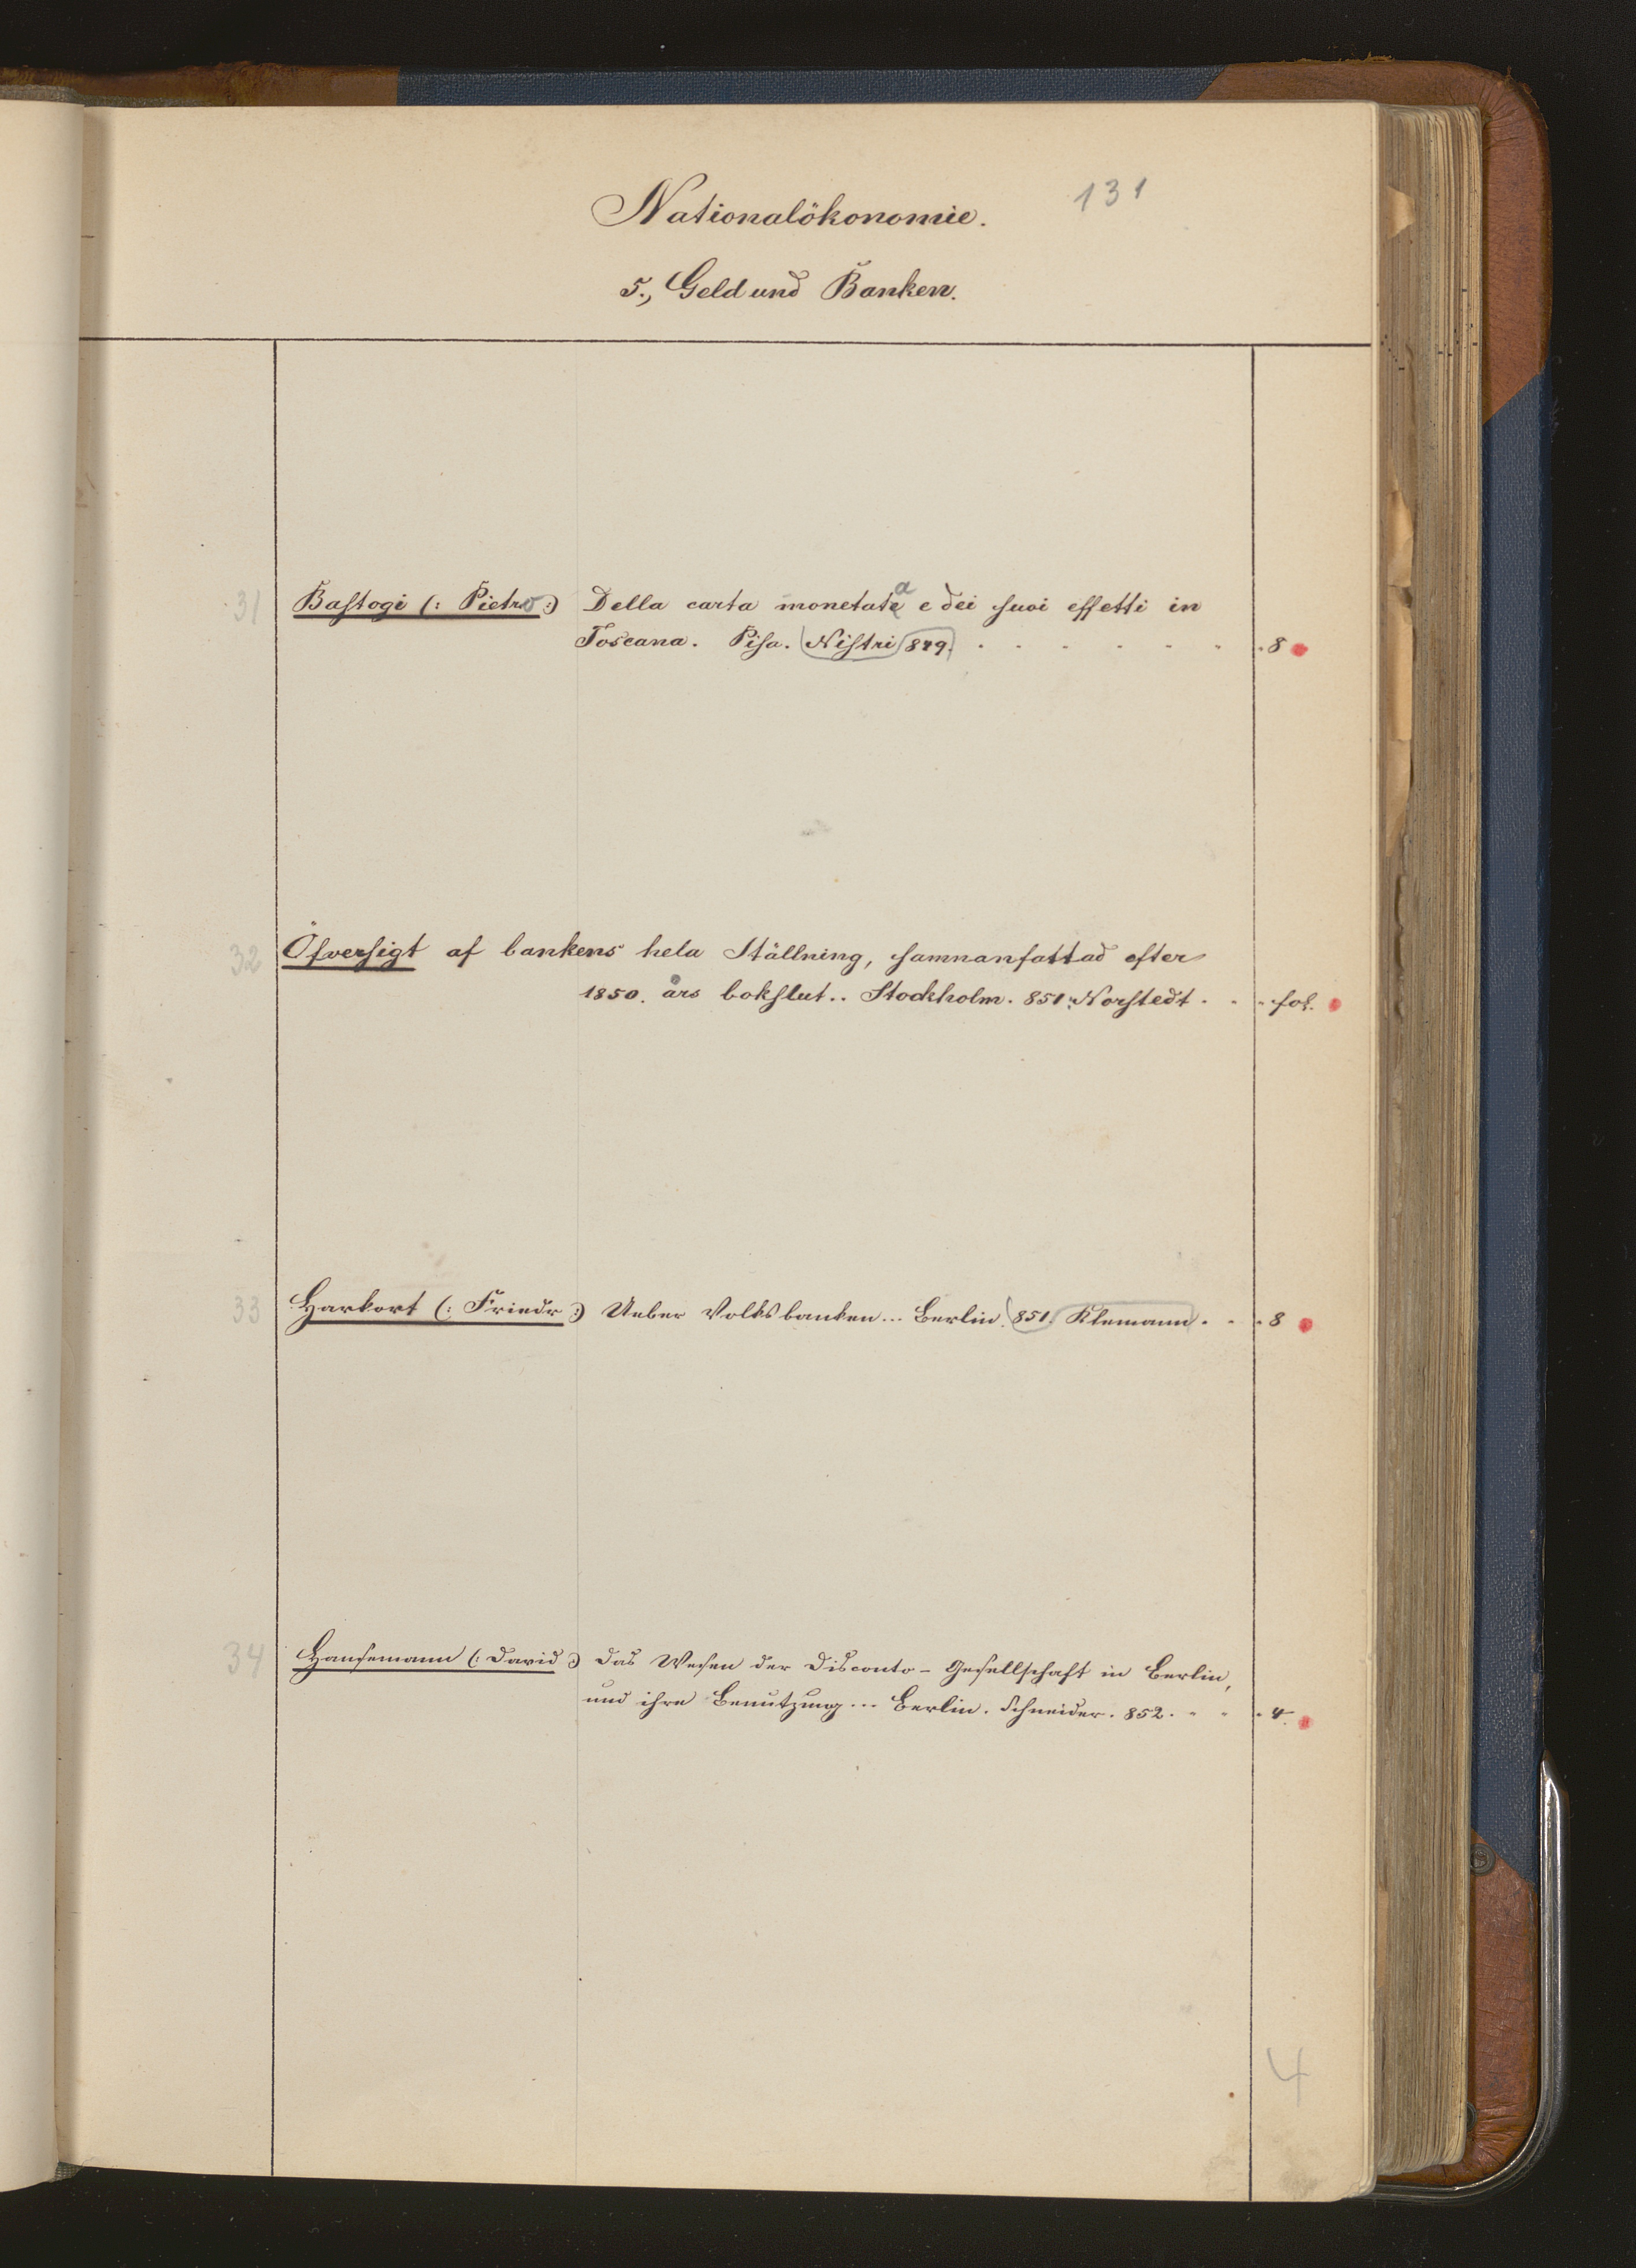 131
Nationalökonomie.
5., Geld und Banken.
31 Bastogi (: Pietro :) Della carta monetata e dei suoi effetti in
Toscana. Pisa. Nistri 849. . . . . . . 8
32 Öfversigt af bankens hela Ställning, samnanfattad efter
1850. års bokslut.. Stockholm. 851. Norstedt . . . fol.
33 Harkort (: Friedr :) Ueber Volksbanken... Berlin. 851. Klemann. . . 8
34 Hansemann (: David :) Das Wesen der Disconto-Gesellschaft in Berlin,
und ihre Benutzung... Berlin. Schneider. 852. . . . 4.
4